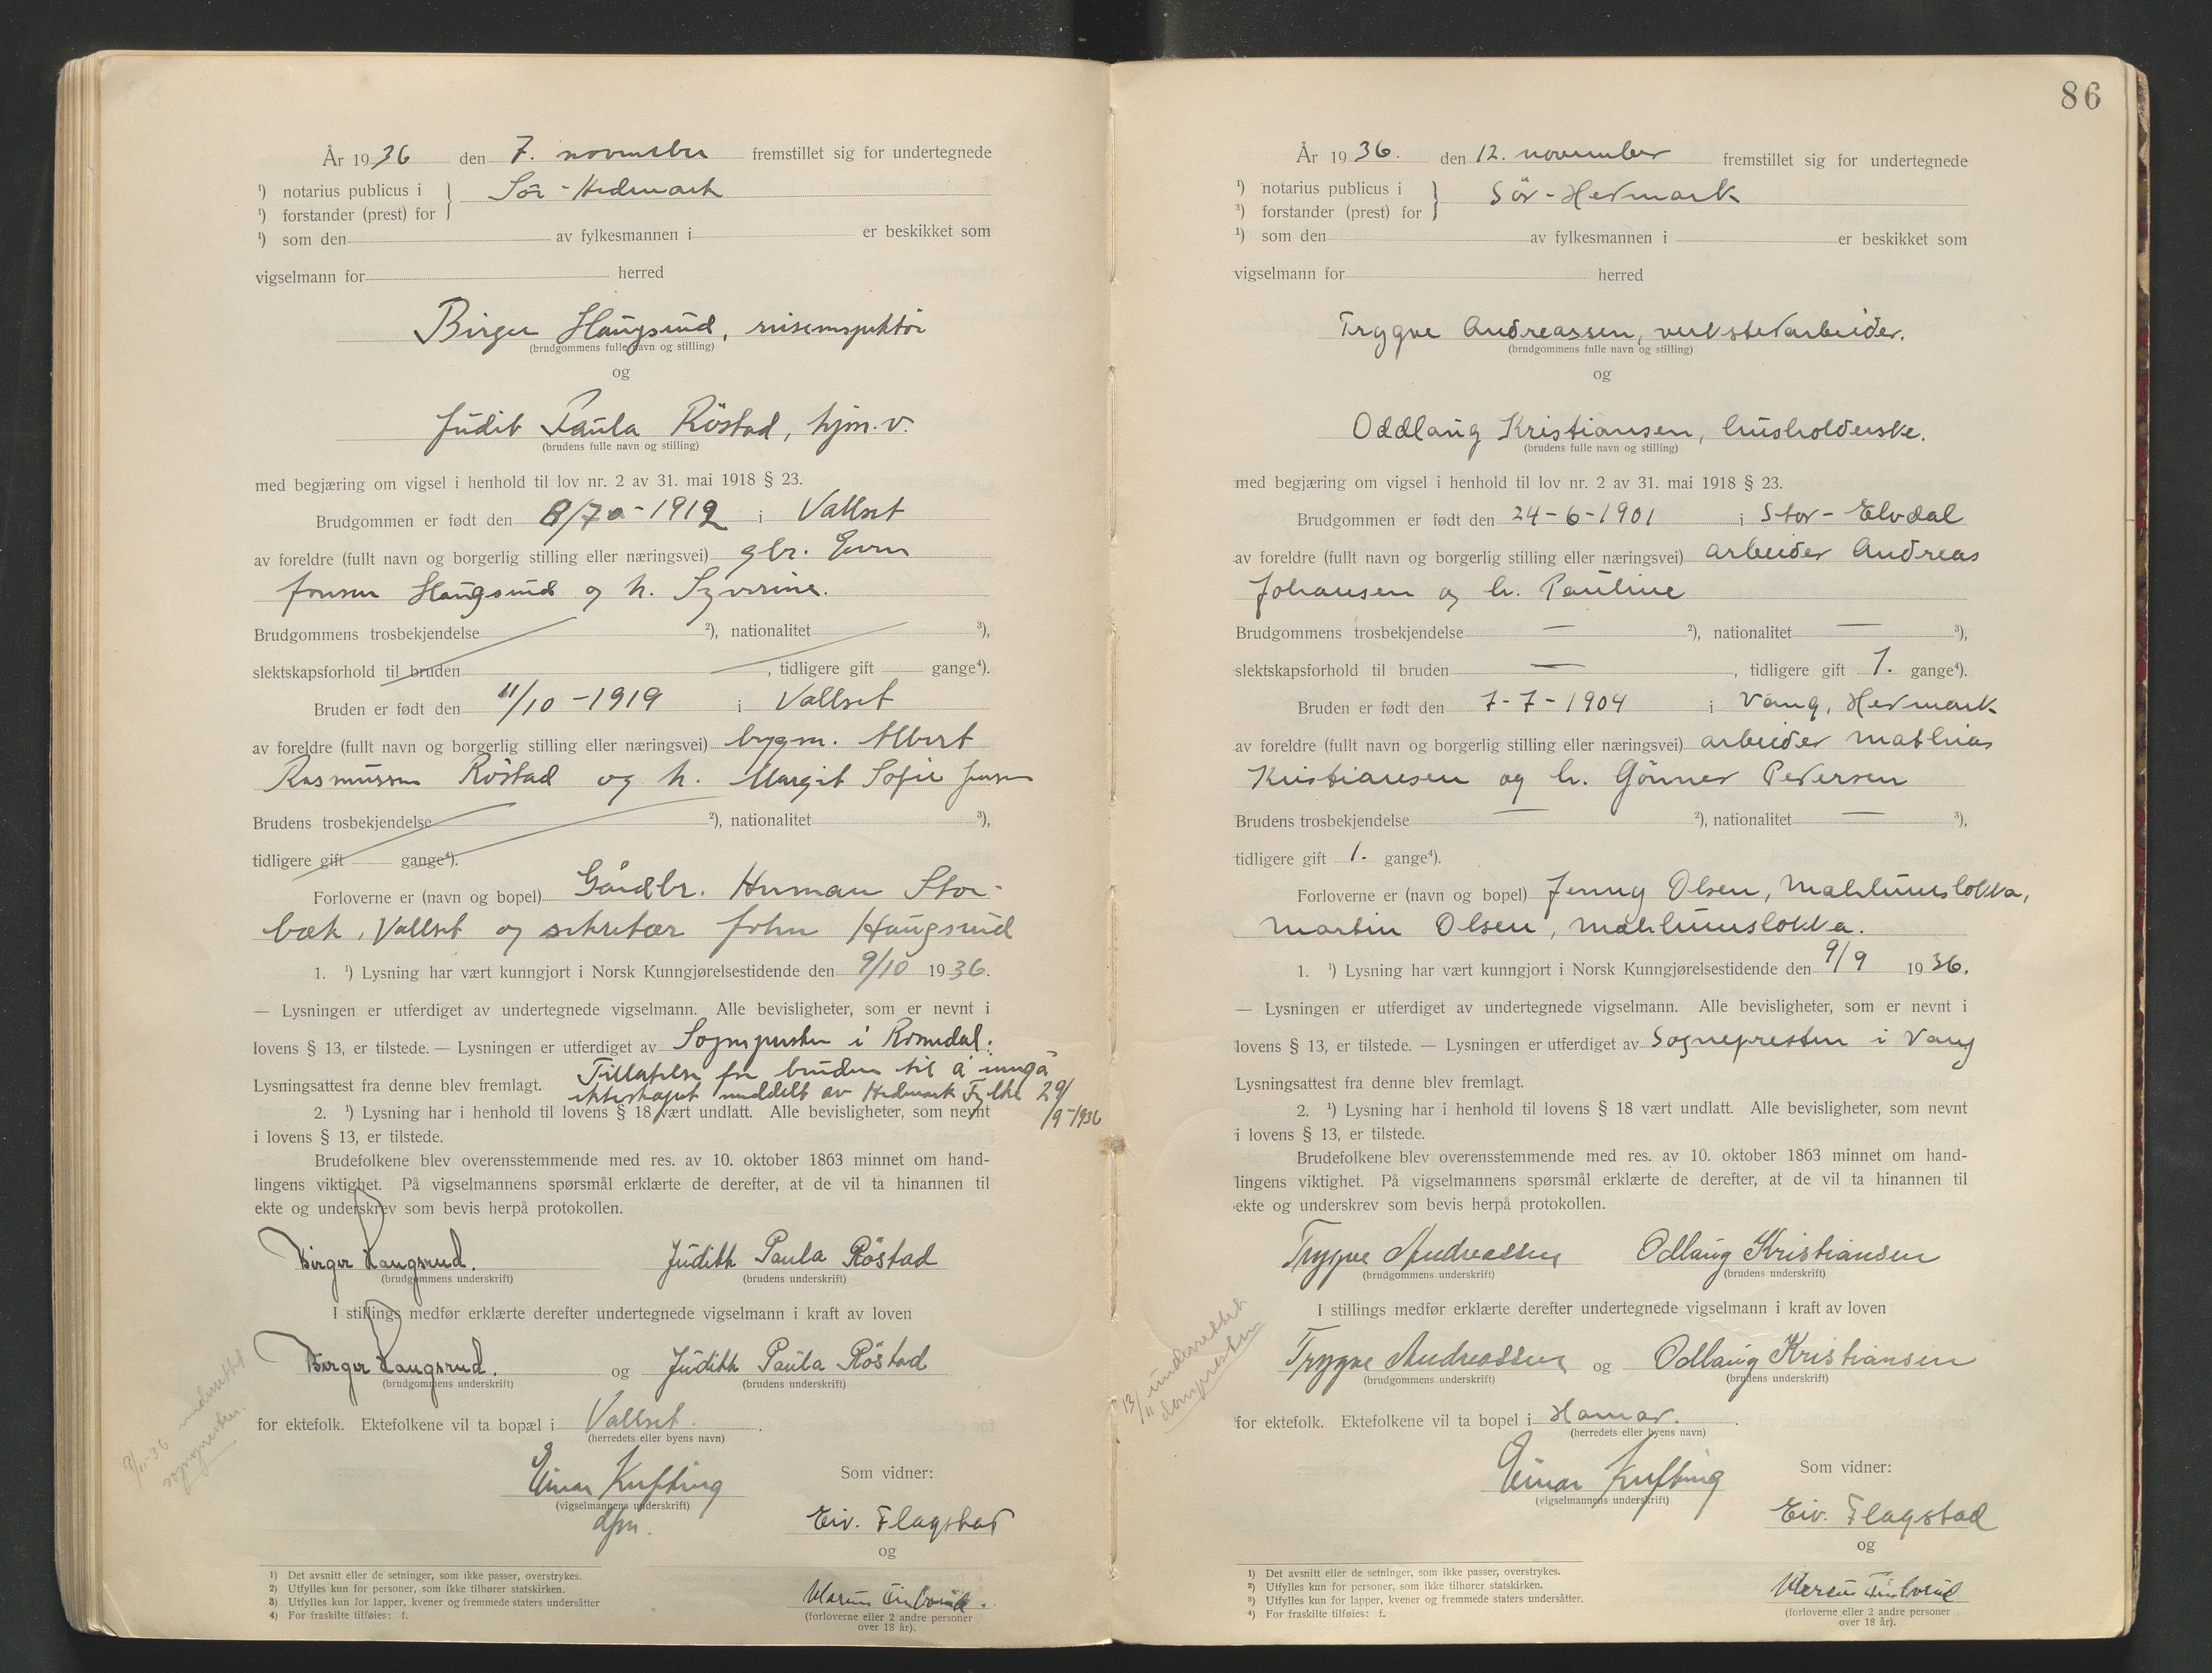 År 1936 den 7. november fremstillet sig for undertegnede
¹) notarius publicus i } Sör-Hedmark
¹) forstander (prest) for
¹) som den av fylkesmannen i er beskikket som
vigselmann for herred
Birger Haugsrud, reiseinspektör
(brudgommens fulle navn og stilling)
og
Judit Paula Röstad, hjm.v.
(brudens fulle navn og stilling)
med begjæring om vigsel i henhold til lov nr. 2 av 31. mai 1918 § 23.
Brudgommen er født den 1912 i Vallset
av foreldre (fullt navn og borgerlig stilling eller næringsvei) gbr. Even
Jonsen Haugsrud og h. Syverine.
Brudgommens trosbekjendelse ²), nationalitet ³),
slektskapsforhold til bruden , tidligere gift gange⁴).
Bruden er født den 11/10-1919 i Vallset
av foreldre (fullt navn og borgerlig stilling eller næringsvei) bygm. Albert
Rasmussen Röstad og h. Margit Sofie Jensen
Brudens trosbekjendelse ²), nationalitet ³),
tidligere gift gange⁴).
Forloverne er (navn og bopel) Gårdbr. Herman Stor-
bæk, Vallset og sekretær John Haugsrud
1. ¹) Lysning har vært kunngjort i Norsk Kunngjørelsestidende den 9/10 1936.
— Lysningen er utferdiget av undertegnede vigselmann. Alle bevisligheter, som er nevnt i
lovens § 13, er tilstede. — Lysningen er utferdiget av Sognepresten i Romedal.
Lysningsattest fra denne blev fremlagt. Tillatelse for bruden til å inngå
ekteskapet meddelt av Hedmark Fylke 29/
2. ¹) Lysning har i henhold til lovens § 18 vært undlatt. Alle bevisligheter, som nevnt /9-1936
i lovens § 13, er tilstede.
Brudefolkene blev overensstemmende med res. av 10. oktober 1863 minnet om hand-
lingens viktighet. På vigselmannens spørsmål erklærte de derefter, at de vil ta hinannen til
ekte og underskrev som bevis herpå protokollen.
Birger Haugsrud. Judith Paula Röstad
(brudgommens underskrift) (brudens underskrift)
I stillings medfør erklærte derefter undertegnede vigselmann i kraft av loven
Birger Haugsrud. og Judith Paula Röstad
(brudgommens underskrift) (brudens underskrift)
for ektefolk. Ektefolkene vil ta bopæl i Vallset.
(herredets eller byens navn)
9/11-36 underrettet
sognepresten.
Einar Kufting Som vidner:
(vigselmannens underskrift)
dfm. Eiv. Flagstad
og
(forloverne eller 2 andre personer
over 18 år).
1) Det avsnitt eller de setninger, som ikke passer, overstrykes.
2) Utfylles kun for personer, som ikke tilhører statskirken.
3) Utfylles kun for lapper, kvener og fremmede staters undersåtter
4) For fraskilte tilføies: f.
86
År 1936. den 12. november fremstillet sig for undertegnede
¹) notarius publicus i } Sör-Hedmark
³) forstander (prest) for
¹) som den av fylkesmannen i er beskikket som
vigselmann for herred
Trygve Andreassen, verkstedarbeider.
(brudgommens fulle navn og stilling)
og
Oddlaug Kristiansen, husholderske.
(brudens fulle navn og stilling)
med begjæring om vigsel i henhold til lov nr. 2 av 31. mai 1918 § 23.
Brudgommen er født den 24-6-1901 i Stor-Elvdal
av foreldre (fullt navn og borgerlig stilling eller næringsvei) arbeider Andreas
Johansen og h. Pauline
Brudgommens trosbekjendelse — ²), nationalitet — ³),
slektskapsforhold til bruden — , tidligere gift 1. gange⁴).
Bruden er født den 7-7-1904 i Vang, Hedmark
av foreldre (fullt navn og borgerlig stilling eller næringsvei) arbeider Mathias
Kristiansen og h. Gönner Pedersen
Brudens trosbekjendelse — ²), nationalitet — ³),
tidligere gift 1. gange⁴).
Forloverne er (navn og bopel) Jenny Olsen, Mæhlumslökka,
Martin Olsen, Mæhlumslökka.
1. ¹) Lysning har vært kunngjort i Norsk Kunngjørelsestidende den 9/9 1936.
— Lysningen er utferdiget av undertegnede vigselmann. Alle bevisligheter, som er nevnt i
lovens § 13, er tilstede. — Lysningen er utferdiget av Sognepresten i Vang
Lysningsattest fra denne blev fremlagt.
2. ¹) Lysning har i henhold til lovens § 18 vært undlatt. Alle bevisligheter, som nevnt
i lovens § 13, er tilstede.
Brudefolkene blev overensstemmende med res. av 10. oktober 1863 minnet om hand-
lingens viktighet. På vigselmannens spørsmål erklærte de derefter, at de vil ta hinannen til
ekte og underskrev som bevis herpå protokollen.
Trygve Andreassen Odlaug Kristiansen
(brudgommens underskrift) (brudens underskrift)
I stillings medfør erklærte derefter undertegnede vigselmann i kraft av loven
Trygve Andreassen og Odlaug Kristiansen
(brudgommens underskrift) (brudens underskrift)
13/11 underrettet
domprosten
for ektefolk. Ektefolkene vil ta bopel i Hamar.
(herredets eller byens navn)
Einar Kufting Som vidner:
(vigselmannens underskrift)
Eiv. Flagstad
og
(forloverne eller 2 andre personer
over 18 år).
1) Det avsnitt eller de setninger, som ikke passer, overstrykes.
²) Utfylles kun for personer, som ikke tilhører statskirken.
³) Utfylles kun for lapper, kvener og fremmede staters undersåtter.
⁴) For fraskilte tilføies: f.